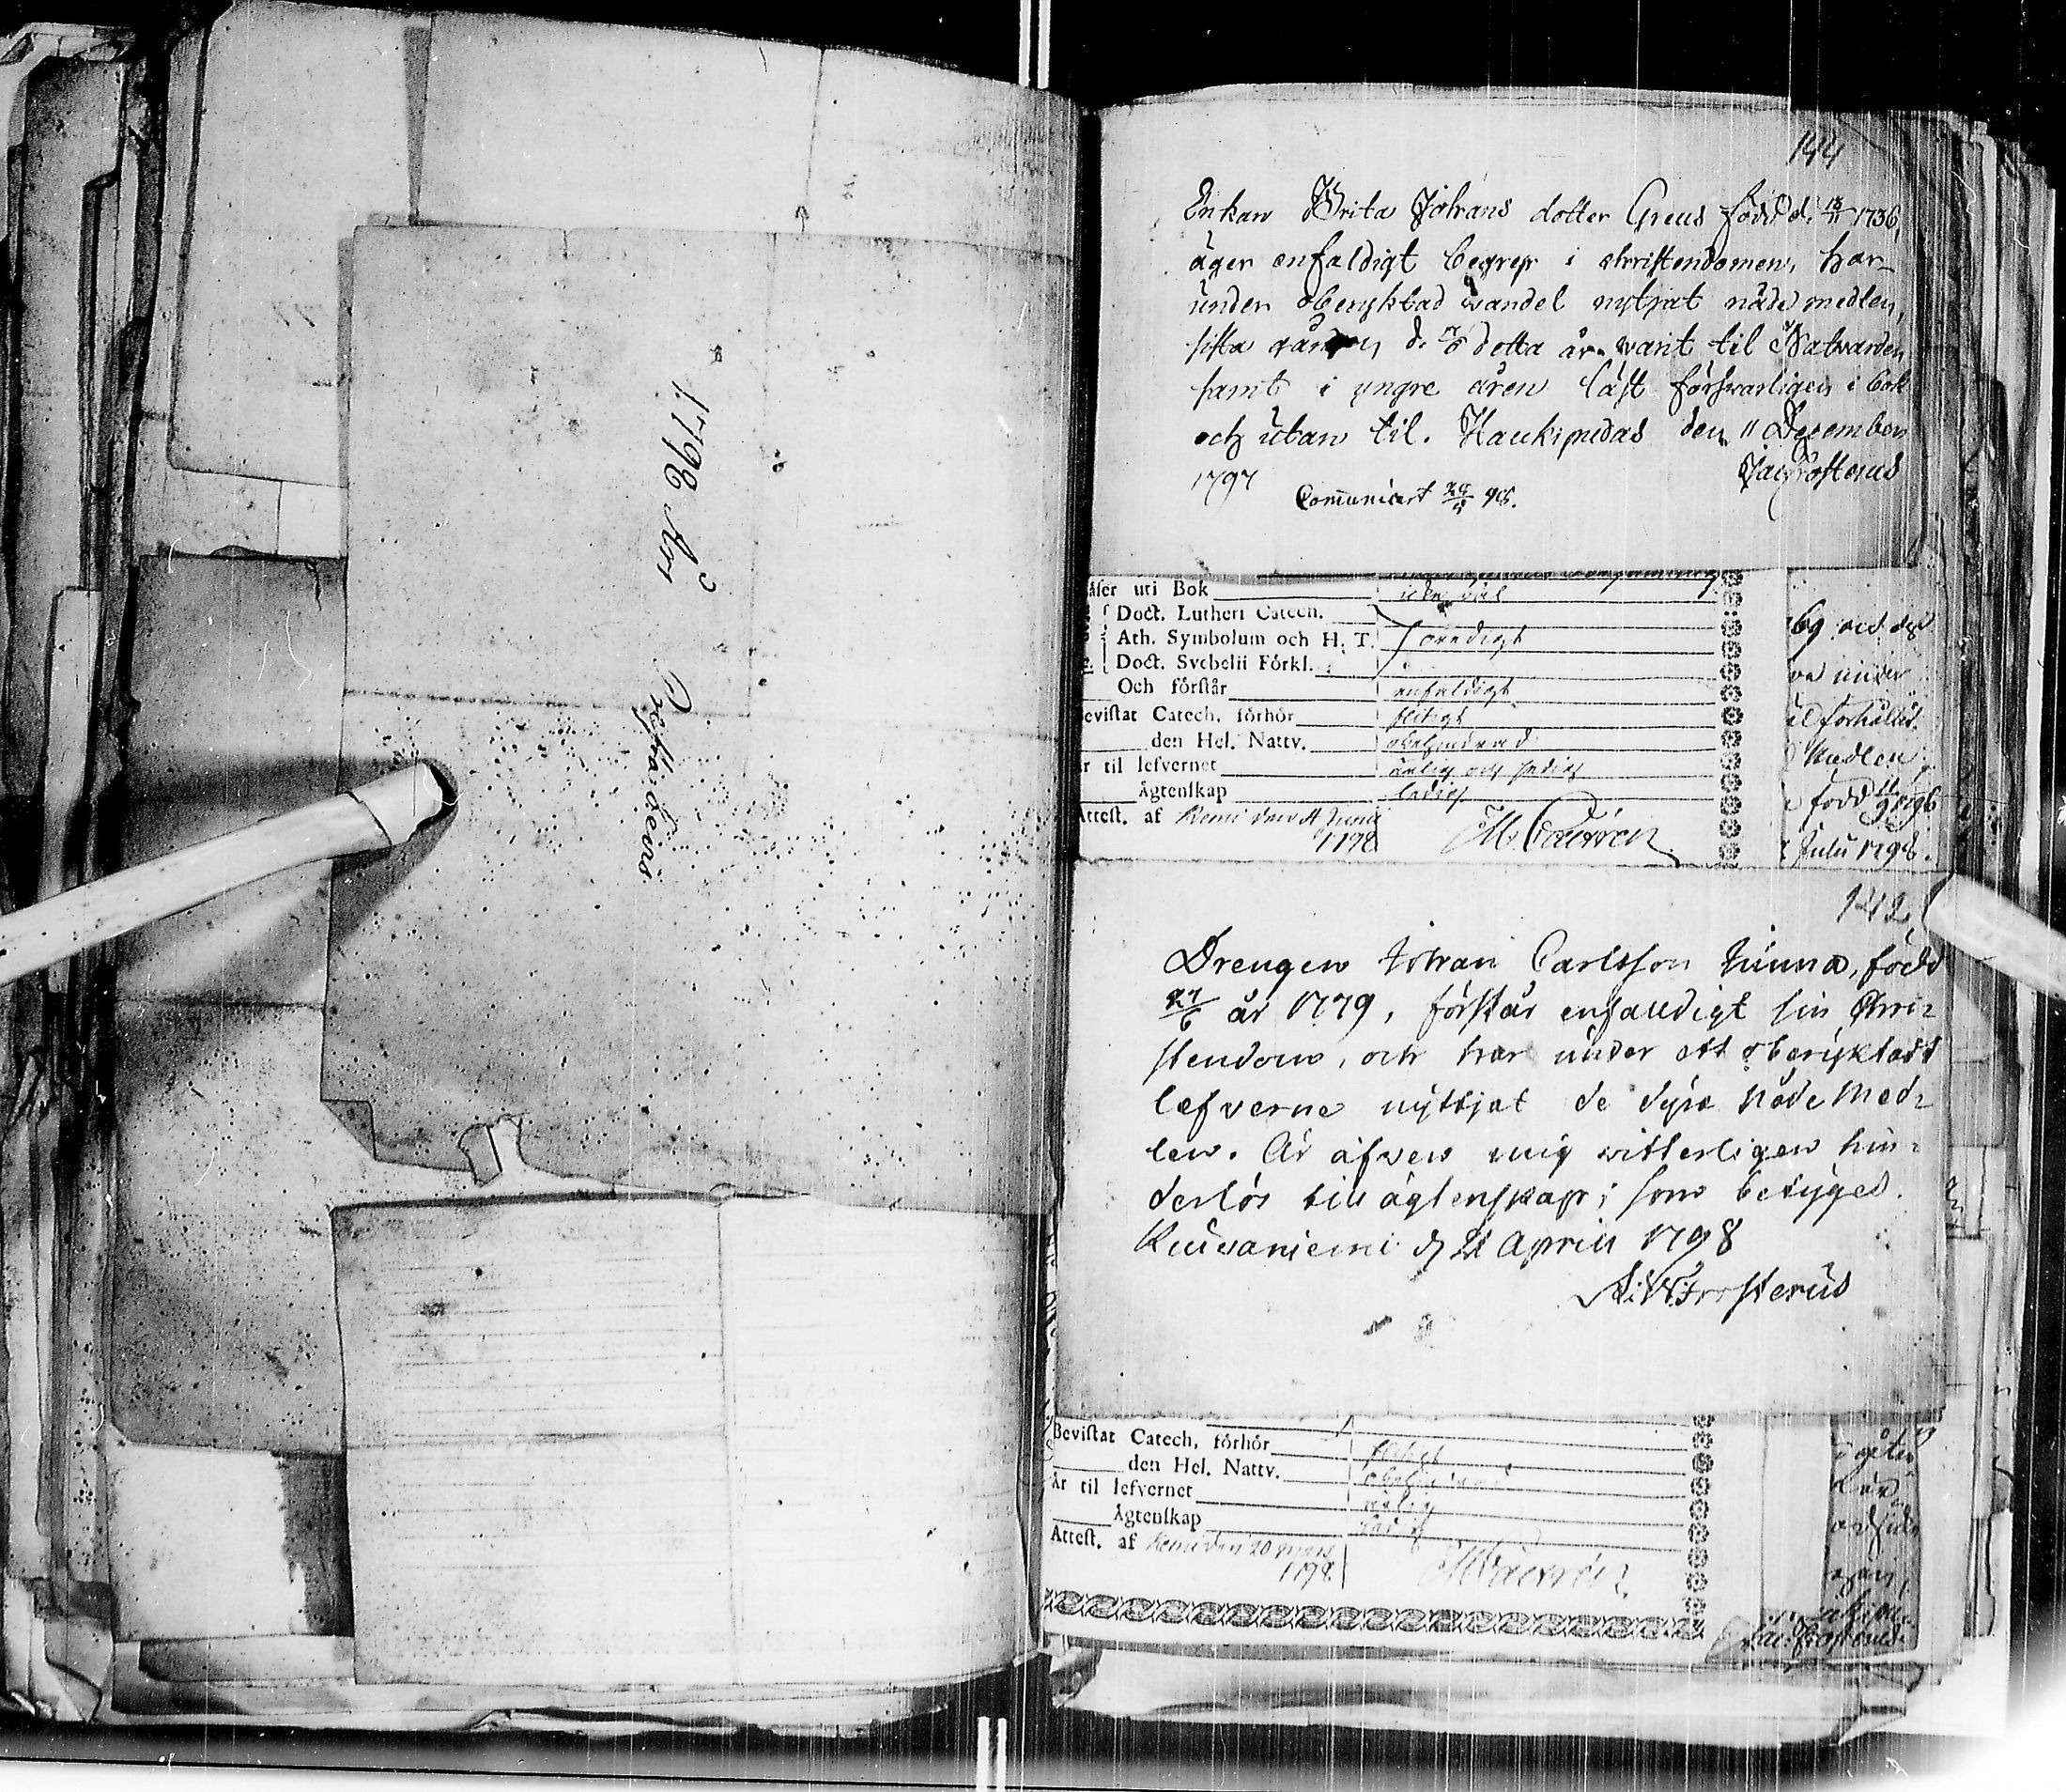 1798 Års
Prestabevis
144
Enkan Brita Johans dotter Greus född d. 13/11 1736,
äger enfaldigt begrep i christendomen, har
under oberyktad vandel nyttjat nåde medlen,
sista gången d. detta år varit til Nattvarden
samt i yngre åren läst försvarligen i bok
och utan til. Haukipudas den 11 December
1797
Jac Frosterus
Comunicert 29/5 98.
äser uti Bok
Doct. Lutheri Catech.
Ath. Symbolum och H. T.
Doct. Svebelii Förkl.
Och förstår enfaldigt
evistat Catech. förhör flitigt
den Hel. Nattv.
r til lefvernet ärlig och sedig
Ägtenskap ledig
Attest. af Kemi den Junii
1798
ve under
förhållit
Medlen
född 11/9 1796
Julii 1798.
142
Drengen Johan Carlsson Junna, född
27/6 år 1779, förstår enfalldigt sin Chri-
stendom, och har under ett oberyktadt
lefverne nyttjat de dyra Nåde Med-
len. Är äfven mig vitterligen hin-
derlös till ägtenskap; som betyges.
Kuivaniemi d 21 April 1798
A: W: Frosterus
Bevistat Catech. förhör flitigt
den Hel. Nattv.
Är til lefvernet ärlig
Ägtenskap ledig
Attest. af Kemi den 20 Mars
1798
Jac: Frosterus